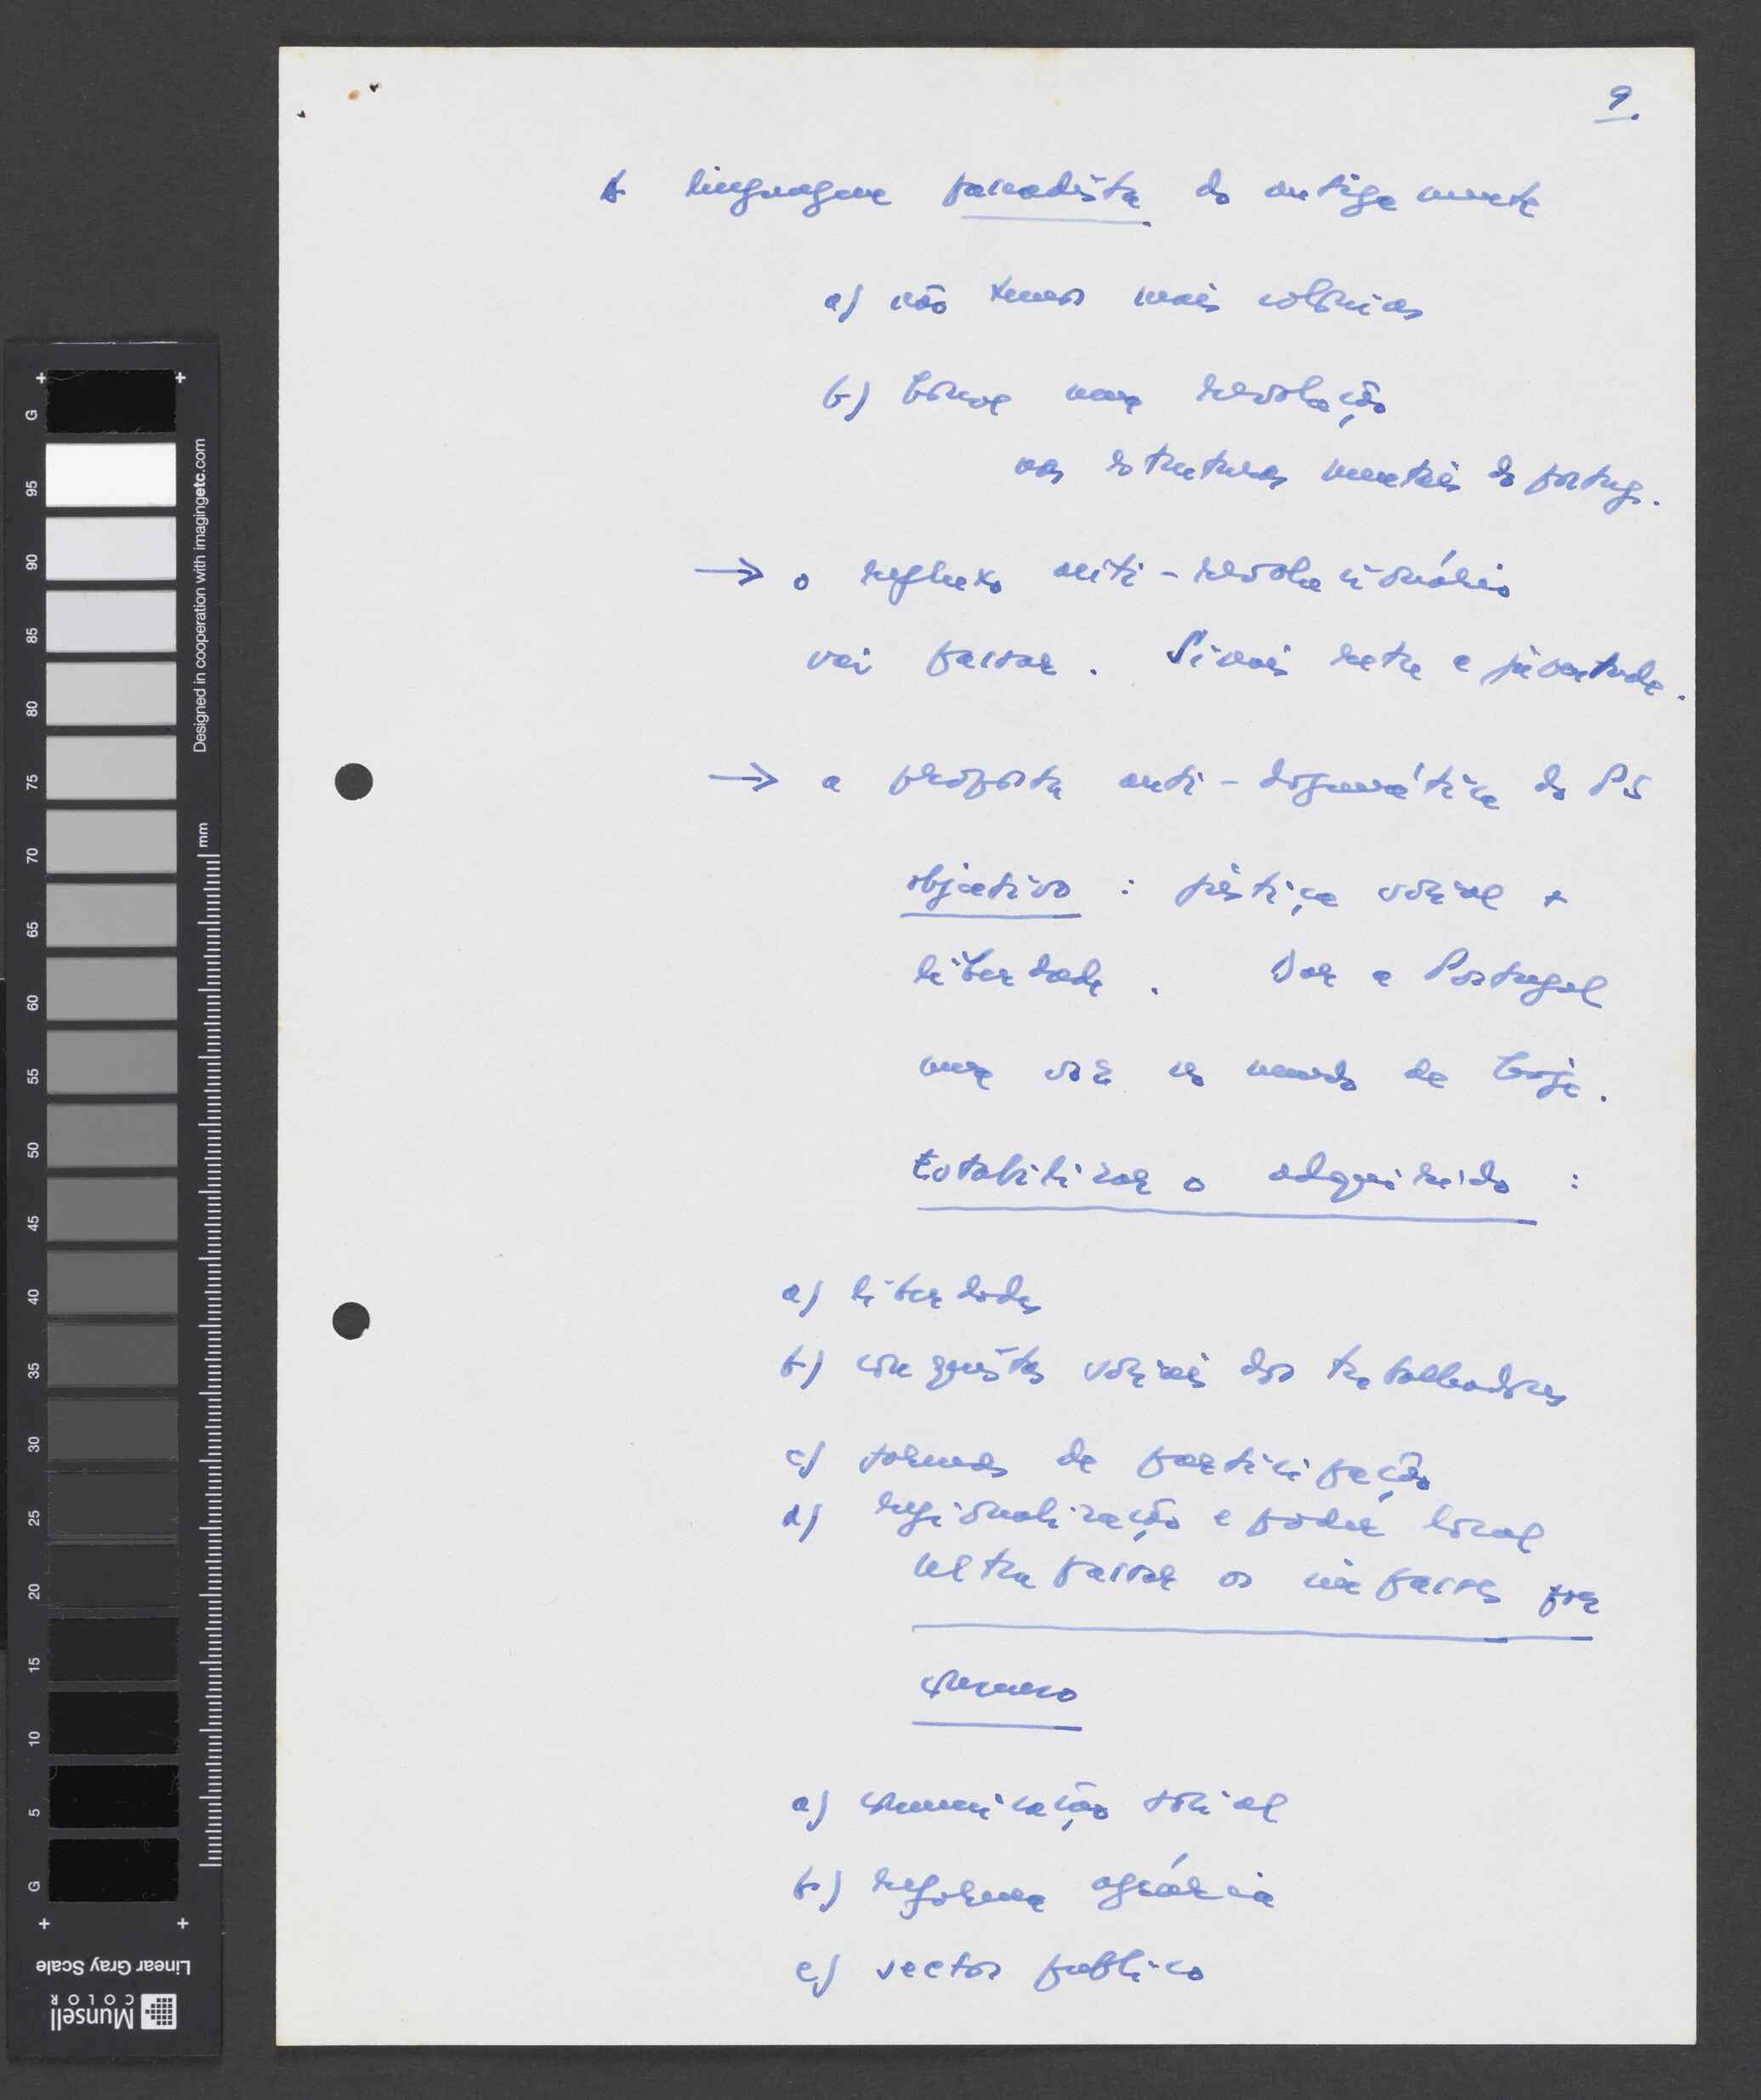 9.
A linguagem passadista do antigamente
a) não temos mais colónias
b) houve uma revolução
nas estruturas mentais do portug.
→ o reflexo anti-revolucionário
vai passar. Sinais neta e juventude.
→ a proposta anti-dogmática do PS
objectivo : justiça social +
liberdade. Dar a Portugal
uma voz no mundo de hoje.
Estabilizar o adquirido :
a) liberdades
b) conquistas sociais dos trabalhadores
c) formas de participação
d) regionalização e poder local
ultrapassar os impasses por
consenso
a) comunicação social
b) reforma agrária
c) sector publico
G 95 90 85 80 75 70 65 60 55 50 45 40 35 30 25 20 15 10 5 G
Designed in cooperation with imagingetc.com
mm
Linear Gray Scale
Munsell
COLOR